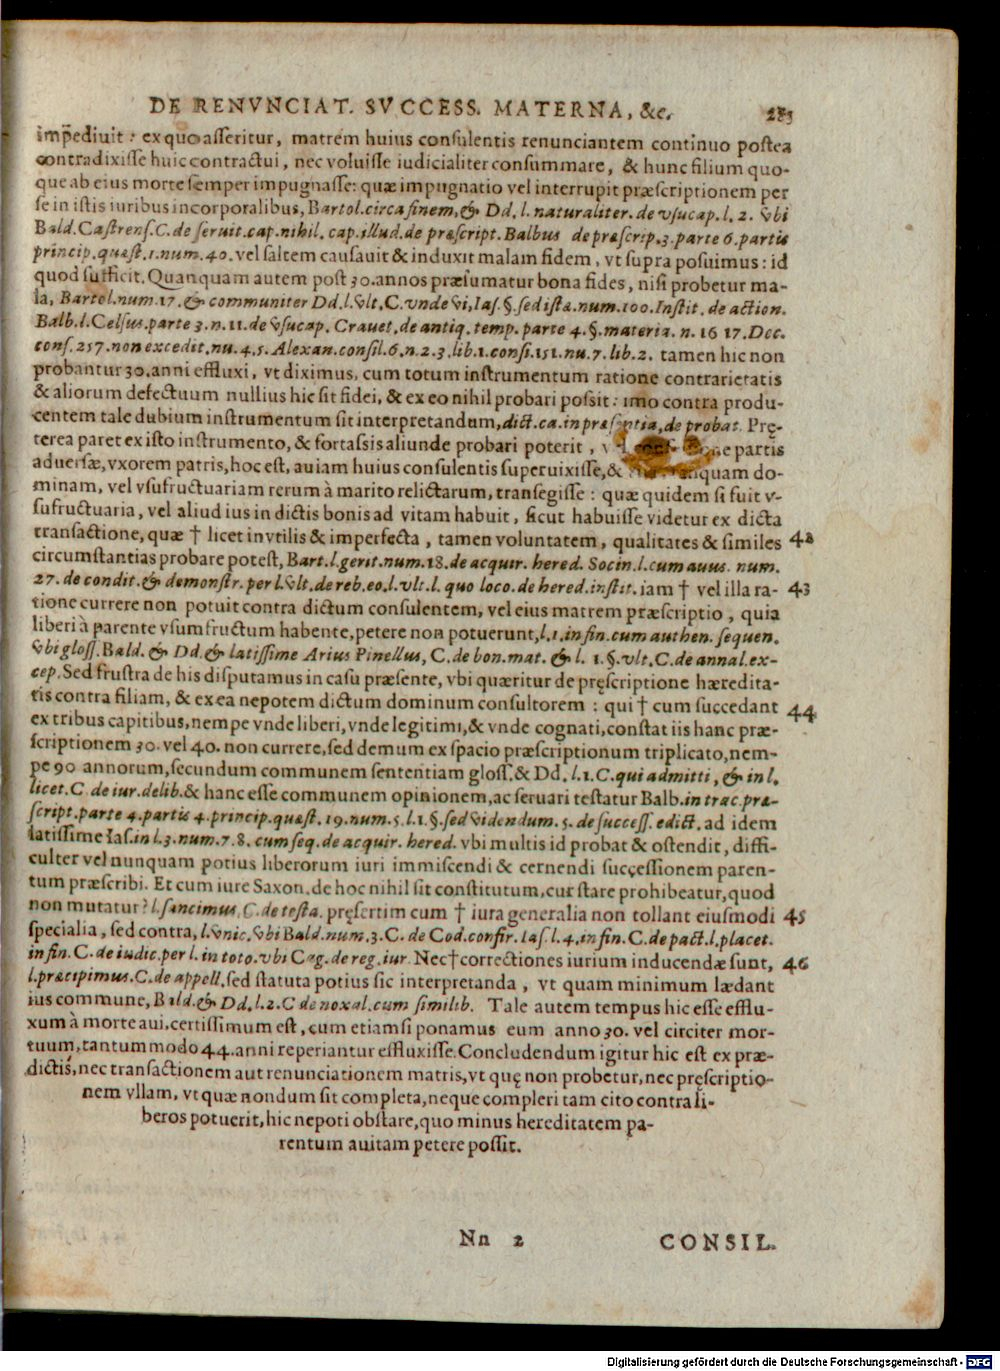 DE RENVNCIAT. SVCCESS. MATERNA, &c. 283
impediuit: ex quo asseritur, matrem huius consulentis renunciantem continuo postea
contradixisse huic contractui, nec voluisse iudicialiter consummare, & hunc filium quo-
que ab eius morte semper impugnasse: quæ impugnatio vel interrupit præscriptionem per
se in istis iuribus incorporalibus, Bartol. circa finem, & Dd. l. naturaliter. de vsucap. l. 2. vbi
Bald. Castrens. C. de seruit. cap. nihil. cap. illud. de præscript. Balbus de præscrip. 3. parte 6. partis
princip. quæst. 1. num. 40. vel saltem causauit & induxit malam fidem, vt supra posuimus: id
quod sufficit. Quanquam autem post 30. annos præsumatur bona fides, nisi probetur ma-
la, Bartol. num. 17. & communiter Dd. l. vlt. C. vnde vi, Ias. §. sed ista. num. 100. Instit. de action.
Balb. l. Celsus. parte 3. n. 11. de vsucap. Crauet. de antiq. temp. parte 4. §. materia. n. 16 17. Dec.
cons. 257. non excedit. nu. 4. 5. Alexan. consil. 6. n. 2. 3. lib. 1. consi. 151. nu. 7. lib. 2. tamen hic non
probantur 30. anni effluxi, vt diximus, cum totum instrumentum ratione contrarietatis
& aliorum defectuum nullius hic sit fidei, & ex eo nihil probari possit: imo contra produ-
centem tale dubium instrumentum sit interpretandum, dict. ca. in præsentia, de probat. Prę-
terea paret ex isto instrumento, & fortassis aliunde probari poterit, partis
aduersæ, vxorem patris, hoc est, auiam huius consulentis superuixisse, & tanquam do-
minam, vel vsufructuariam rerum à marito relictarum, transegisse: quæ quidem si fuit v-
sufructuaria, vel aliud ius in dictis bonis ad vitam habuit, sicut habuisse videtur ex dicta
transactione, quæ † licet invtilis & imperfecta, tamen voluntatem, qualitates & similes 42
circumstantias probare potest, Bart. l. gerit. num. 18. de acquir. hered. Socin. l. cum auus. num.
27. de condit. & demonstr. per l. vlt. de reb. eo. l. vlt. l. quo loco. de hered. instit. iam † vel illa ra- 43
tione currere non potuit contra dictum consulentem, vel eius matrem præscriptio, quia
liberi à parente vsumfructum habente, petere non potuerunt, l. 1. in fin. cum authen. sequen.
vbi gloss. Bald. & Dd. & latissime Arius Pinellus, C. de bon. mat. & l. 1. §. vlt. C. de annal. ex-
cep. Sed frustra de his disputamus in casu præsente, vbi quæritur de pręscriptione hæredita-
tis contra filiam, & ex ea nepotem dictum dominum consultorem: qui † cum succedant 44
ex tribus capitibus, nempe vnde liberi, vnde legitimi, & vnde cognati, constat iis hanc præ-
scriptionem 30. vel 40. non currere, sed demum ex spacio præscriptionum triplicato, nem-
pe 90 annorum, secundum communem sententiam gloss. & Dd. l. 1. C. qui admitti, & in l.
licet. C. de iur. delib. & hanc esse communem opinionem, ac seruari testatur Balb. in trac. præ-
script. parte 4. partis 4. princip. quæst. 19. num. 5. l. 1. §. sed videndum. 5. de success. edict. ad idem
latissime Ias. in l. 3. num. 7. 8. cum seq. de acquir. hered. vbi multis id probat & ostendit, diffi-
culter vel nunquam potius liberorum iuri immiscendi & cernendi successionem paren-
tum præscribi. Et cum iure Saxon. de hoc nihil sit constitutum, cur stare prohibeatur, quod
non mutatur? l. sancimus. C. de testa. pręsertim cum † iura generalia non tollant eiusmodi 45
specialia, sed contra, l. vnic. vbi Bald. num. 3. C. de Cod. confir. Ias. l. 4. in fin. C. de pact. l. placet.
in fin. C. de iudic. per l. in toto. vbi Cag. de reg. iur. Nec † correctiones iurium inducendæ sunt, 46
l. præcipimus. C. de appell. sed statuta potius sic interpretanda, vt quam minimum lædant
ius commune, Bald. & Dd. l. 2. C de noxal. cum similib. Tale autem tempus hic esse efflu-
xum à morte aui, certissimum est, cum etiamsi ponamus eum anno 30. vel circiter mor-
tuum, tantummodo 44. anni reperiantur effluxisse. Concludendum igitur hic est ex præ-
dictis, nec transactionem aut renunciationem matris, vt quę non probetur, nec pręscriptio-
nem vllam, vt quæ nondum sit completa, neque compleri tam cito contra li-
beros potuerit, hic nepoti obstare, quo minus hereditatem pa-
rentum auitam petere possit.
Nn 2 CONSIL.
Digitalisierung gefördert durch die Deutsche Forschungsgemeinschaft - DFG